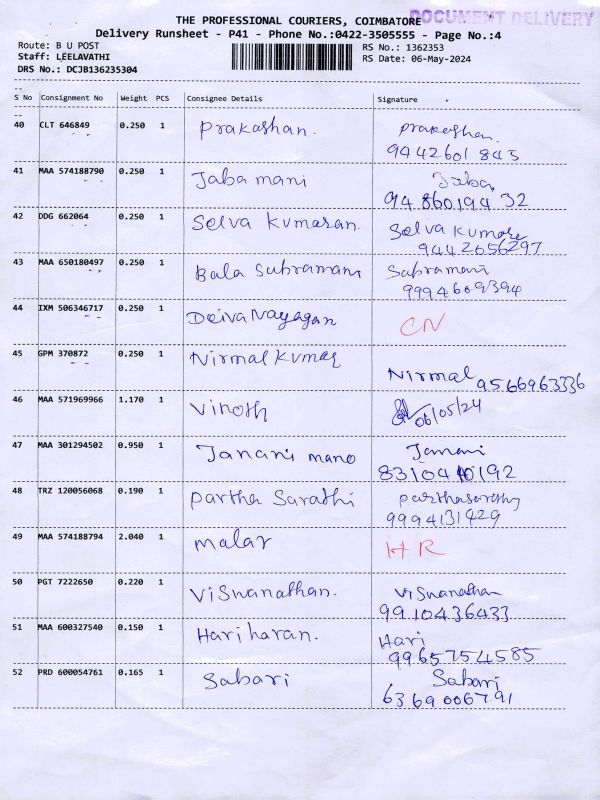 THE PROFESSIONAL COURIERS, COIMBATORE DOCUMENT DELIVERY
Delivery Runsheet - P41 - Phone No.:0422-3505555 - Page No.:4
Route: B U POST RS No.: 1362353
Staff: LEELAVATHI RS Date: 06-May-2024
DRS No.: DCJB136235304
S No Consignment No Weight PCS Consignee Details Signature
40 CLT 646849 0.250 1 Prakashan. Prakashan.
9442601845
41 MAA 574188790 0.250 1 Jaba mani Jaba
9486019432
42 DDG 662064 0.250 1 Selva kumaran. Selva kumare
9442656297
43 MAA 650180497 0.250 1 Bala Subramani Subramani
9994609394
44 IXM 506346717 0.250 1 DeivaNayagan CN
45 GPM 370872 0.250 1 Nirmal kumar
Nirmal 9566963336
46 MAA 571969966 1.170 1 Vinoth 06/05/24
47 MAA 301294502 0.950 1 Janani mano Janani
8310410192
48 TRZ 120056068 0.190 1 Partha Sarathi parthasarathy
9994131429
49 MAA 574188794 2.040 1 Malar HR
50 PGT 7222650 0.220 1 Viswanathan. Viswanathan
9910436433
51 MAA 600327540 0.150 1 Hari haran. Hari
9965754585
52 PRD 600054761 0.165 1 Sabari Sabari
6369006791